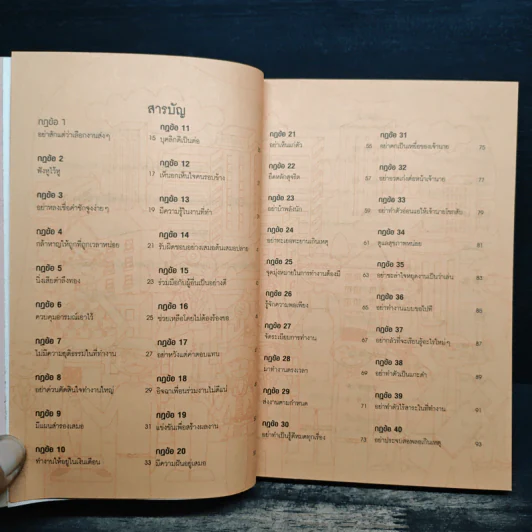 สารบัญ
กฎข้อ 1
อย่าสักแต่ว่าเลือกงานส่งๆ
กฎข้อ 2
ฟังหูไว้หู
กฎข้อ 3
อย่าหลงเชื่อคำชักจูงง่ายๆ
กฎข้อ 4
กล้าหาญให้ถูกที่ถูกเวลาหน่อย
กฎข้อ 5
นิ่งเสียตำลึงทอง
กฎข้อ 6
ควบคุมอารมณ์เอาไว้
กฎข้อ 7
ไม่มีความยุติธรรมในที่ทำงาน
กฎข้อ 8
อย่าด่วนตัดสินใจทำงานใหญ่
กฎข้อ 9
มีแผนสำรองเสมอ
กฎข้อ 10
ทำงานให้อยู่ในเงินเดือน
กฎข้อ 11
15 บุคลิกดีเป็นต่อ
กฎข้อ 12
17 เห็นอกเห็นใจคนรอบข้าง
กฎข้อ 13
19 มีความรู้ในงานที่ทำ
กฎข้อ 14
21 รับผิดชอบอย่างเสมอต้นเสมอปลาย
กฎข้อ 15
23 ร่วมมือกับผู้อื่นเป็นอย่างดี
กฎข้อ 16
25 ช่วยเหลือโดยไม่ต้องร้องขอ
กฎข้อ 17
27 อย่าหวังแต่ค่าตอบแทน
กฎข้อ 18
29 อิจฉาเพื่อนร่วมงานไม่ดีแน่
กฎข้อ 19
31 แข่งขันเพื่อสร้างผลงาน
กฎข้อ 20
33 มีความฝันอยู่เสมอ
กฎข้อ 21
อย่าเห็นแก่ตัว
กฎข้อ 22
ยึดหลักสุจริต
กฎข้อ 23
อย่าบ้าพลังนัก
กฎข้อ 24
อย่าทะเยอทะยานเกินเหตุ
กฎข้อ 25
จุดมุ่งหมายในการทำงานต้องมี
กฎข้อ 26
รู้จักความพอเพียง
กฎข้อ 27
จัดระเบียบการทำงาน
กฎข้อ 28
มาทำงานตรงเวลา
กฎข้อ 29
ส่งงานตามกำหนด
กฎข้อ 30
อย่าทำเป็นรู้ดีหมดทุกเรื่อง
กฎข้อ 31
55 อย่าตกเป็นเหยื่อของเจ้านาย 75
กฎข้อ 32
57 อย่าอวดเก่งต่อหน้าเจ้านาย 77
กฎข้อ 33
59 อย่าทำตัวห่อนแอให้เจ้านายโขกสับ 79
กฎข้อ 34
61 ดูแลสุขภาพหน่อย 81
กฎข้อ 35
63 อย่าชะล่าใจหยุดงานเป็นว่าเล่น 83
กฎข้อ 36
65 อย่าทำงานแบบขอไปที 85
กฎข้อ 37
67 อย่ากลัวที่จะเรียนรู้อะไรใหม่ๆ 87
กฎข้อ 38
69 อย่าทำตัวเป็นแกะดำ 89
กฎข้อ 39
71 อย่าทำตัวไร้สาระในที่ทำงาน 91
กฎข้อ 40
73 อย่าประจบสอพลอเกินเหตุ 93